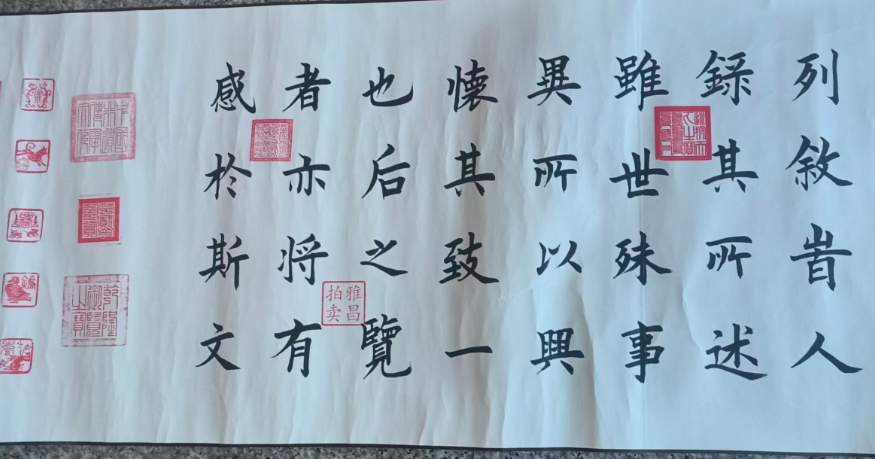 列敘旹人
錄其所述
雖世殊事
異所以興
懷其致一
也后之覽
者亦将有
感於斯文
雅昌拍卖